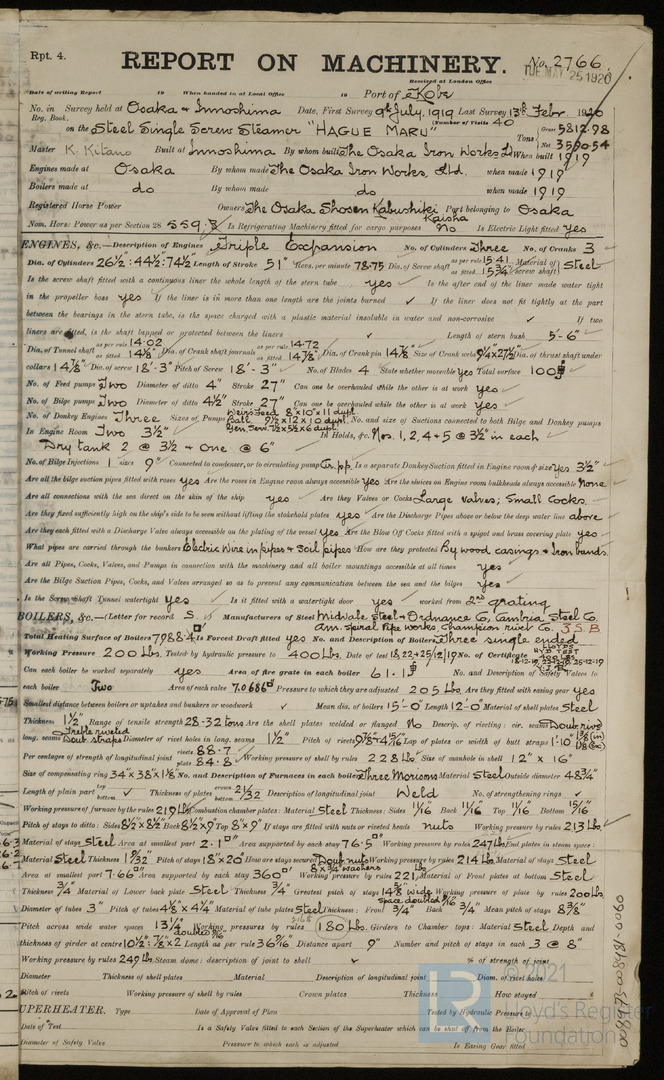 Rpt. 4.
REPORT ON MACHINERY. No. 2766
TUE. MAY 25 1920
Received at London Office
Date of writing Report 19 When handed in at Local Office 19 Port of Kobe
No. in Reg. Book. Survey held at Osaka & Innoshima Date, First Survey 9th July, 1919 Last Survey 13th Febr. 1920
(Number of Visits 40
on the Steel Single Screw Steamer "HAGUE MARU" Tons Gross 5812.98 Net 3590.54
Master K. Kitano Built at Innoshima By whom built The Osaka Iron Works Ld When built 1919
Engines made at Osaka By whom made The Osaka Iron Works, Ltd. when made 1919
Boilers made at do By whom made do when made 1919
Registered Horse Power Owners The Osaka Shosen Kabushiki Kaisha Port belonging to Osaka
Nom. Horse Power as per Section 28 559.8 Is Refrigerating Machinery fitted for cargo purposes No Is Electric Light fitted yes
ENGINES, &c.—Description of Engines Triple Expansion No. of Cylinders Three No. of Cranks 3
Dia. of Cylinders 26½ : 44½ : 74½ Length of Stroke 51" Revs. per minute 78.75 Dia. of Screw shaft as per rule 15.41 as fitted 15¾ Material of screw shaft Steel
Is the screw shaft fitted with a continuous liner the whole length of the stern tube yes Is the after end of the liner made water tight
in the propeller boss yes If the liner is in more than one length are the joints burned ✓ If the liner does not fit tightly at the part
between the bearings in the stern tube, is the space charged with a plastic material insoluble in water and non-corrosive ✓ If two
liners are fitted, is the shaft lapped or protected between the liners ✓ Length of stern bush 5'-6"
Dia. of Tunnel shaft as per rule 14.02 as fitted 14⅛" Dia. of Crank shaft journals as per rule 14.72 as fitted 14⅞" Dia. of Crank pin 14⅞" Size of Crank webs 9¼ x 27½" Dia. of thrust shaft under
collars 14⅞" Dia. of screw 18'-3" Pitch of Screw 18'-3" No. of Blades 4 State whether moveable yes Total surface 100
No. of Feed pumps Two Diameter of ditto 4" Stroke 27" Can one be overhauled while the other is at work yes
No. of Bilge pumps Two Diameter of ditto 4½" Stroke 27" Can one be overhauled while the other is at work yes
No. of Donkey Engines Three Sizes of Pumps Weirs Feed 8"x10"x11 dupl. Ball. 9½ x 12 x 10 dupl. Gen. Serv. 7½ x 5½ x 6 dupl. No. and size of Suctions connected to both Bilge and Donkey pumps
In Engine Room Two 3½" In Holds, &c. Nos. 1, 2, 4 & 5 @ 3½" in each
Dry tank 2 @ 3½ & One @ 6"
No. of Bilge Injections 1 sizes 9" Connected to condenser, or to circulating pump Cir. pp. Is a separate Donkey Suction fitted in Engine room & size yes 3½"
Are all the bilge suction pipes fitted with roses yes Are the roses in Engine room always accessible yes Are the sluices on Engine room bulkheads always accessible None
Are all connections with the sea direct on the skin of the ship yes Are they Valves or Cocks Large valves; Small Cocks
Are they fixed sufficiently high on the ship's side to be seen without lifting the stokehold plates yes Are the Discharge Pipes above or below the deep water line above
Are they each fitted with a Discharge Valve always accessible on the plating of the vessel yes Are the Blow Off Cocks fitted with a spigot and brass covering plate yes
What pipes are carried through the bunkers Electric Wire in pipes & Soil pipes How are they protected By wood casings & iron bands
Are all Pipes, Cocks, Valves, and Pumps in connection with the machinery and all boiler mountings accessible at all times yes
Are the Bilge Suction Pipes, Cocks, and Valves arranged so as to prevent any communication between the sea and the bilges yes
Is the Screw Shaft Tunnel watertight yes Is it fitted with a watertight door yes worked from 2nd grating
BOILERS, &c.—(Letter for record S.) Manufacturers of Steel Midvale Steel & Ordnance Co, Cambria Steel Co.
Am. Spiral Pipe works Champion rivet Co. 3 S.B
Total Heating Surface of Boilers 7988.4 Is Forced Draft fitted yes No. and Description of Boilers Three single ended
Working Pressure 200 Lbs. Tested by hydraulic pressure to 400 Lbs. Date of test 18, 22 & 25/12/19 No. of Certificate LLOYD'S HYD TEST 400 LBS
Can each boiler be worked separately yes Area of fire grate in each boiler 61.1 No. and Description of Safety Valves to
each boiler Two Area of each valve 7.0686 Pressure to which they are adjusted 205 Lbs Are they fitted with easing gear yes
Smallest distance between boilers or uptakes and bunkers or woodwork ✓ Mean dia. of boilers 15'-0" Length 12'-0" Material of shell plates Steel
Thickness 1½" Range of tensile strength 28-32 tons Are the shell plates welded or flanged No Descrip. of riveting: cir. seams Doub rivd
long. seams Treble riveted Doub straps Diameter of rivet holes in long. seams 1½" Pitch of rivets 9⅞-4 15/16 Lap of plates or width of butt straps 1'-10"
Per centages of strength of longitudinal joint rivets 88.7 plate 84.8 Working pressure of shell by rules 228 Lbs. Size of manhole in shell 12" x 16"
Size of compensating ring 34"x38"x1⅛" No. and Description of Furnaces in each boiler Three Morisons Material Steel Outside diameter 48¾"
Length of plain part top bottom ✓ Thickness of plates crown bottom 21/32 Description of longitudinal joint Weld No. of strengthening rings ✓
Working pressure of furnace by the rules 219 Lbs. Combustion chamber plates: Material Steel Thickness: Sides 11/16 Back 11/16 Top 11/16 Bottom 15/16
Pitch of stays to ditto: Sides 8½x8½ Back 8½x9 Top 8"x9" If stays are fitted with nuts or riveted heads nuts Working pressure by rules 213 Lbs.
Material of stays Steel Area at smallest part 2.1 Area supported by each stay 76.5 Working pressure by rules 247 Lbs. End plates in steam space:
Material Steel Thickness 1 9/32 Pitch of stays 18"x20" How are stays secured Doub. nuts 8 x ¾ washers Working pressure by rules 214 Lbs. Material of stays Steel
Area at smallest part 7.66 Area supported by each stay 360 Working pressure by rules 221 Lbs Material of Front plates at bottom Steel
Thickness ¾" Material of Lower back plate Steel Thickness ¾" Greatest pitch of stays 14⅜ wide space doubled 9/16 Working pressure of plate by rules 200 Lbs
Diameter of tubes 3" Pitch of tubes 4⅛ x 4¼ Material of tube plates Steel Thickness: Front ¾" Back ¾" Mean pitch of stays 8⅜"
Pitch across wide water spaces 13¼ doubled 9/16 Working pressures by rules 180 Lbs. Girders to Chamber tops: Material Steel Depth and
thickness of girder at centre 10½ : ⅞ x 2 Length as per rule 36 9/16 Distance apart 9" Number and pitch of stays in each 3 @ 8"
Working pressure by rules 249 Lbs Steam dome: description of joint to shell ✓ % of strength of joint
Diameter Thickness of shell plates Material Description of longitudinal joint Diam. of rivet holes
Pitch of rivets Working pressure of shell by rules Crown plates Thickness How stayed
UPERHEATER. Type Date of Approval of Plan Tested by Hydraulic Pressure to
Date of Test Is a Safety Valve fitted to each Section of the Superheater which can be shut off from the Boiler
Diameter of Safety Valve Pressure to which each is adjusted Is Easing Gear fitted
© 2021
LR
Lloyd's Register
Foundation
008973-008981-0060